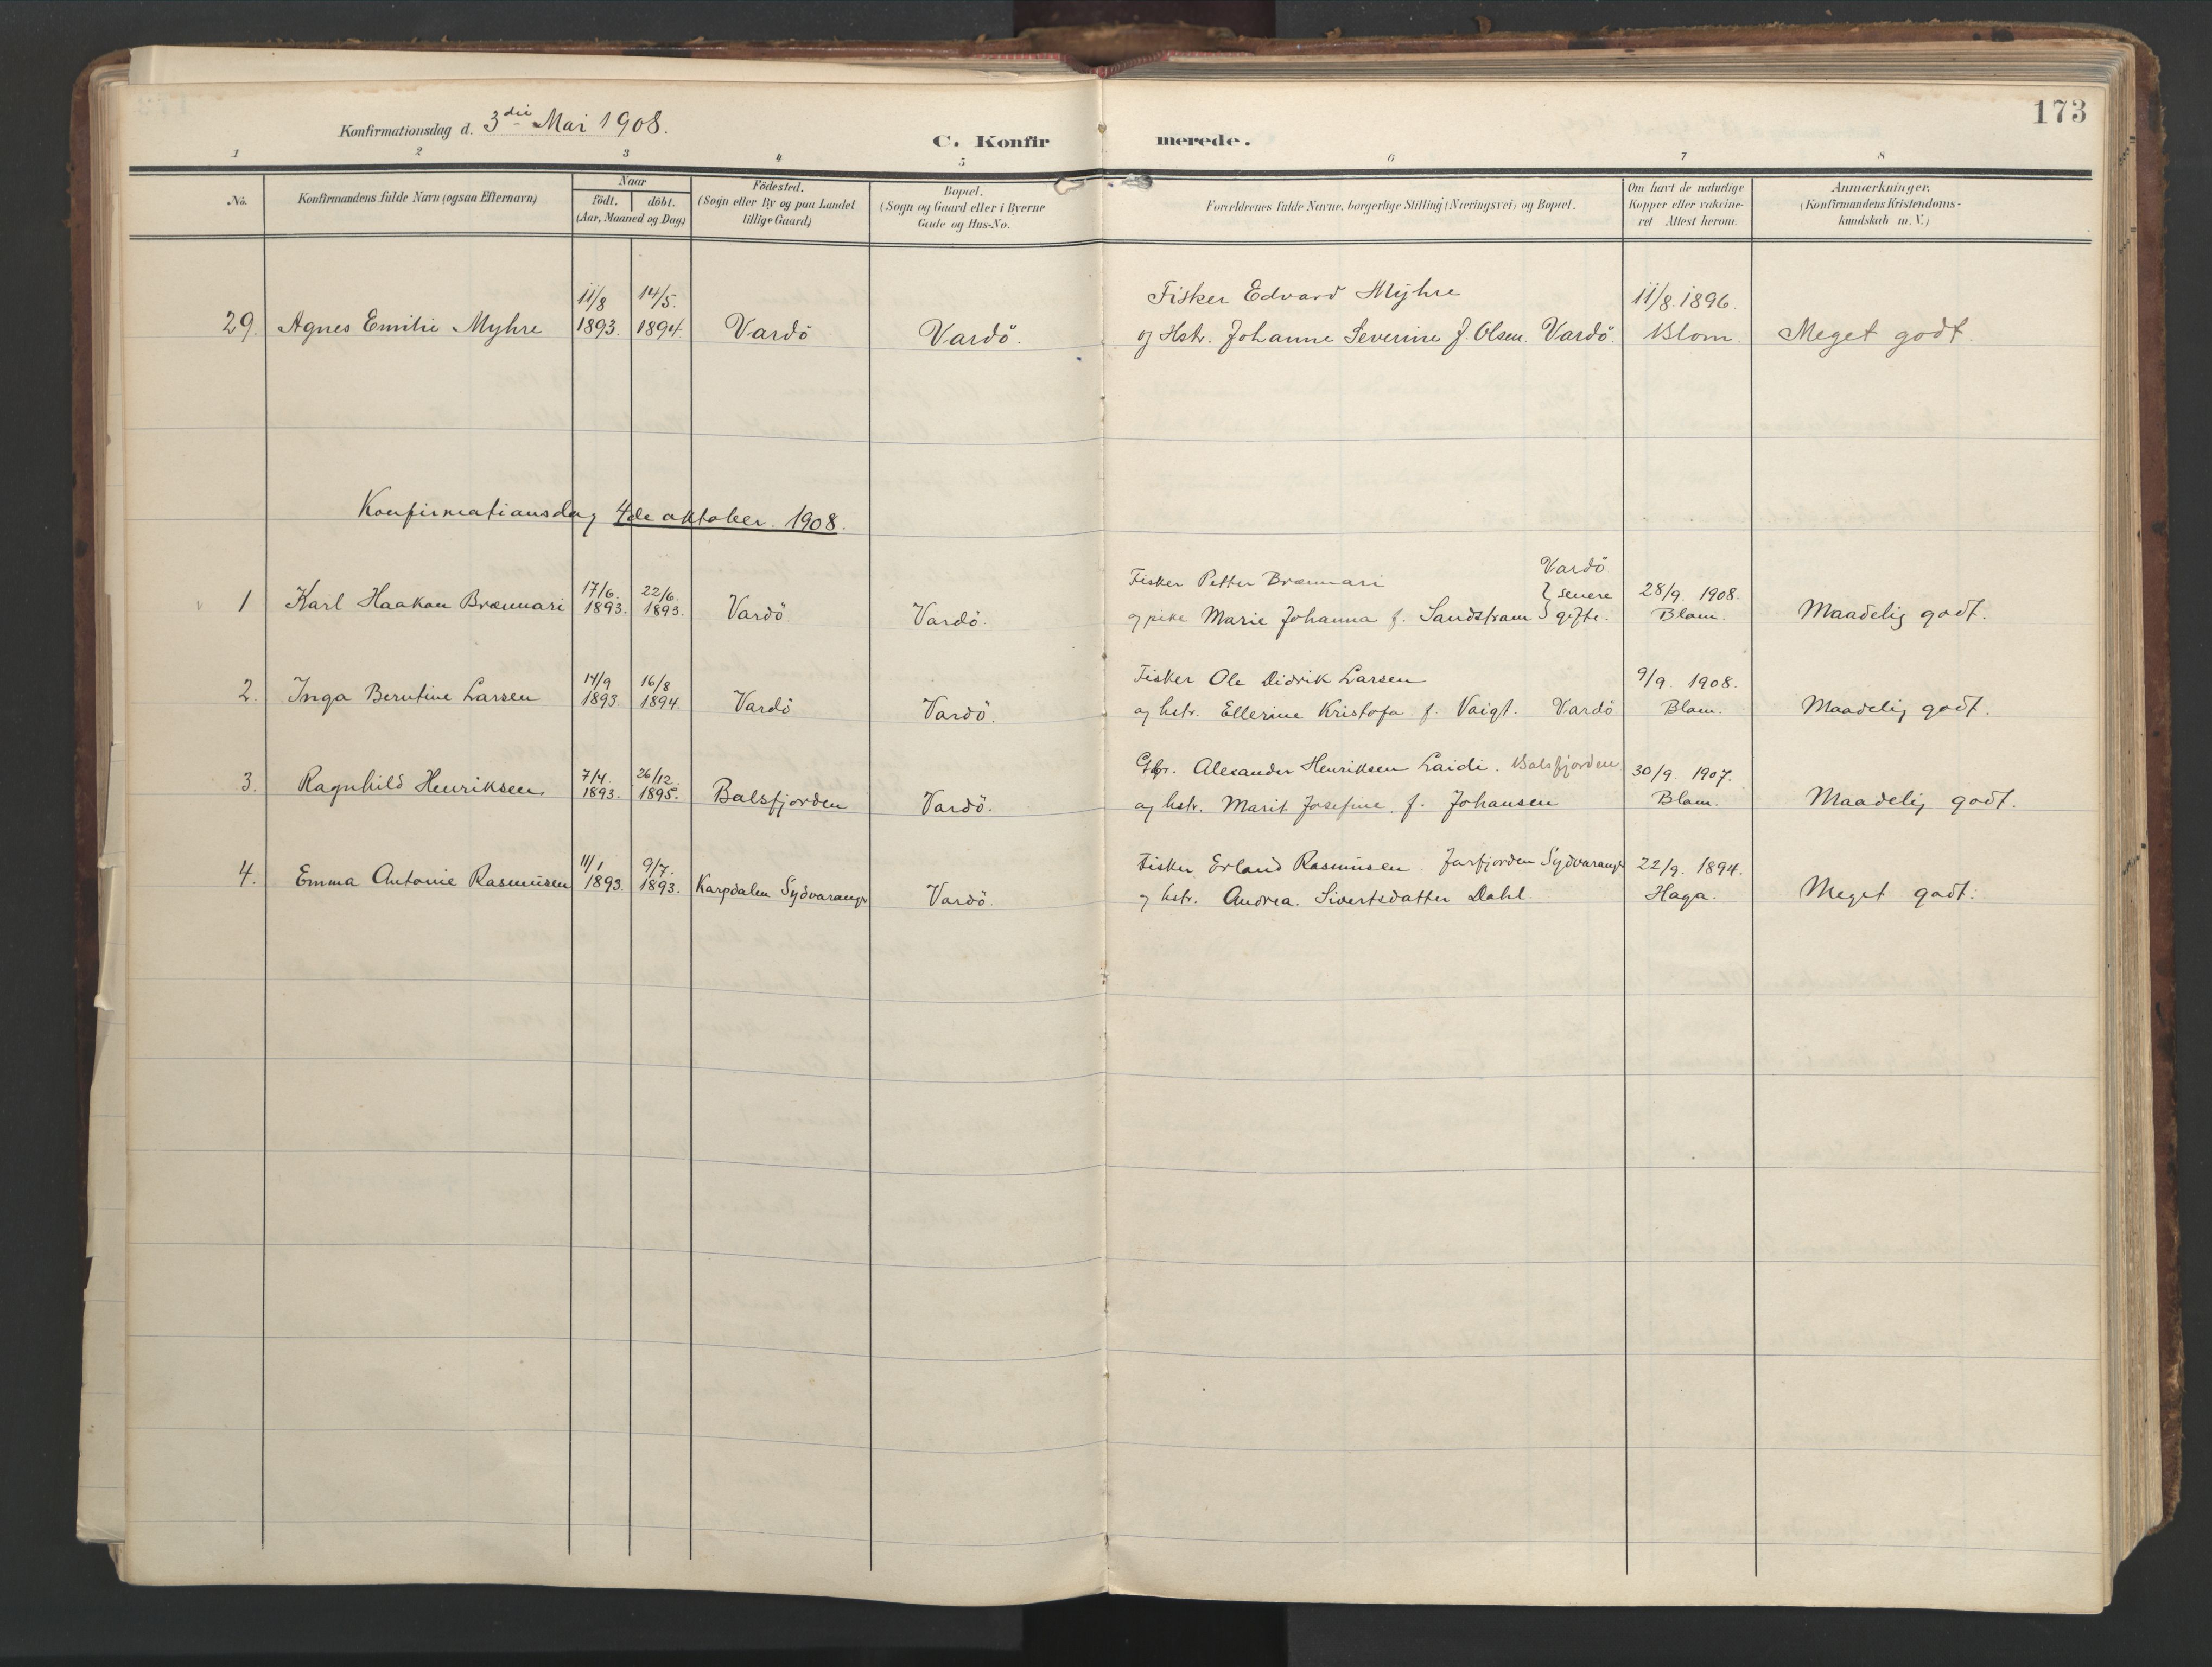 173
Konfirmationsdag d. 3die Mai 1908.
C. Konfirmerede.
1 2 3 4 5 6 7 8
No. Konfirmandens fulde Navn (ogsaa Efternavn) Naar födt. döbt. (Aar, Maaned og Dag) Födested. (Sogn eller By og paa Landet tillige Gaard) Bopæl. (Sogn og Gaard eller i Byerne Gade og Hus-No. Forældrenes fulde Navne, borgerlige Stilling (Næringsvei) og Bopæl. Om havt de naturlige Kopper eller vakcineret Attest herom. Anmærkninger. (Konfirmandens Kristendomskundskab m. V.)
11/8 14/5. Fisker Edvard Myhre 11/8. 1896.
29. Agnes Emilie Myhre 1893. 1894. Vardö Vardö. og Hstr. Johanne Severine f. Olsen. Vardö. Blom. Meget godt.
Konfirmationsdag 4de oktober. 1908.
17/6. 22/6. Fisker Petter Brænnari Vardö. 28/9. 1908.
1 Karl Haakon Brænnari 1893. 1893. Vardö. Vardö. og pike Marie Johanna f. Sandstrøm } senere gifte. Blom. Maadelig godt.
14/9 16/8 Fisker Ole Didrik Larsen 9/9. 1908.
2. Inga Berntine Larsen 1893. 1894. Vardö Vardö. og hstr. Ellerine Kristofa f. Vaigt. Vardö Blom. Maadelig godt.
7/4. 26/12. Gbr. Alexander Henriksen Laidi. Balsfjorden 30/9. 1907.
3. Ragnhild Henriksen 1893. 1895. Balsfjorden Vardö. og hstr. Marit Josefine f. Johansen Blom. Maadelig godt.
11/1 9/7. Fisker Erland Rasmusen. Jarfjorden Sydvaranger 22/9. 1894.
4. Emma Antonie Rasmusen 1893. 1893. Karpdalen Sydvaranger Vardö. og hstr. Andrea. Sivertsdatter Dahl. Haga. Meget godt.